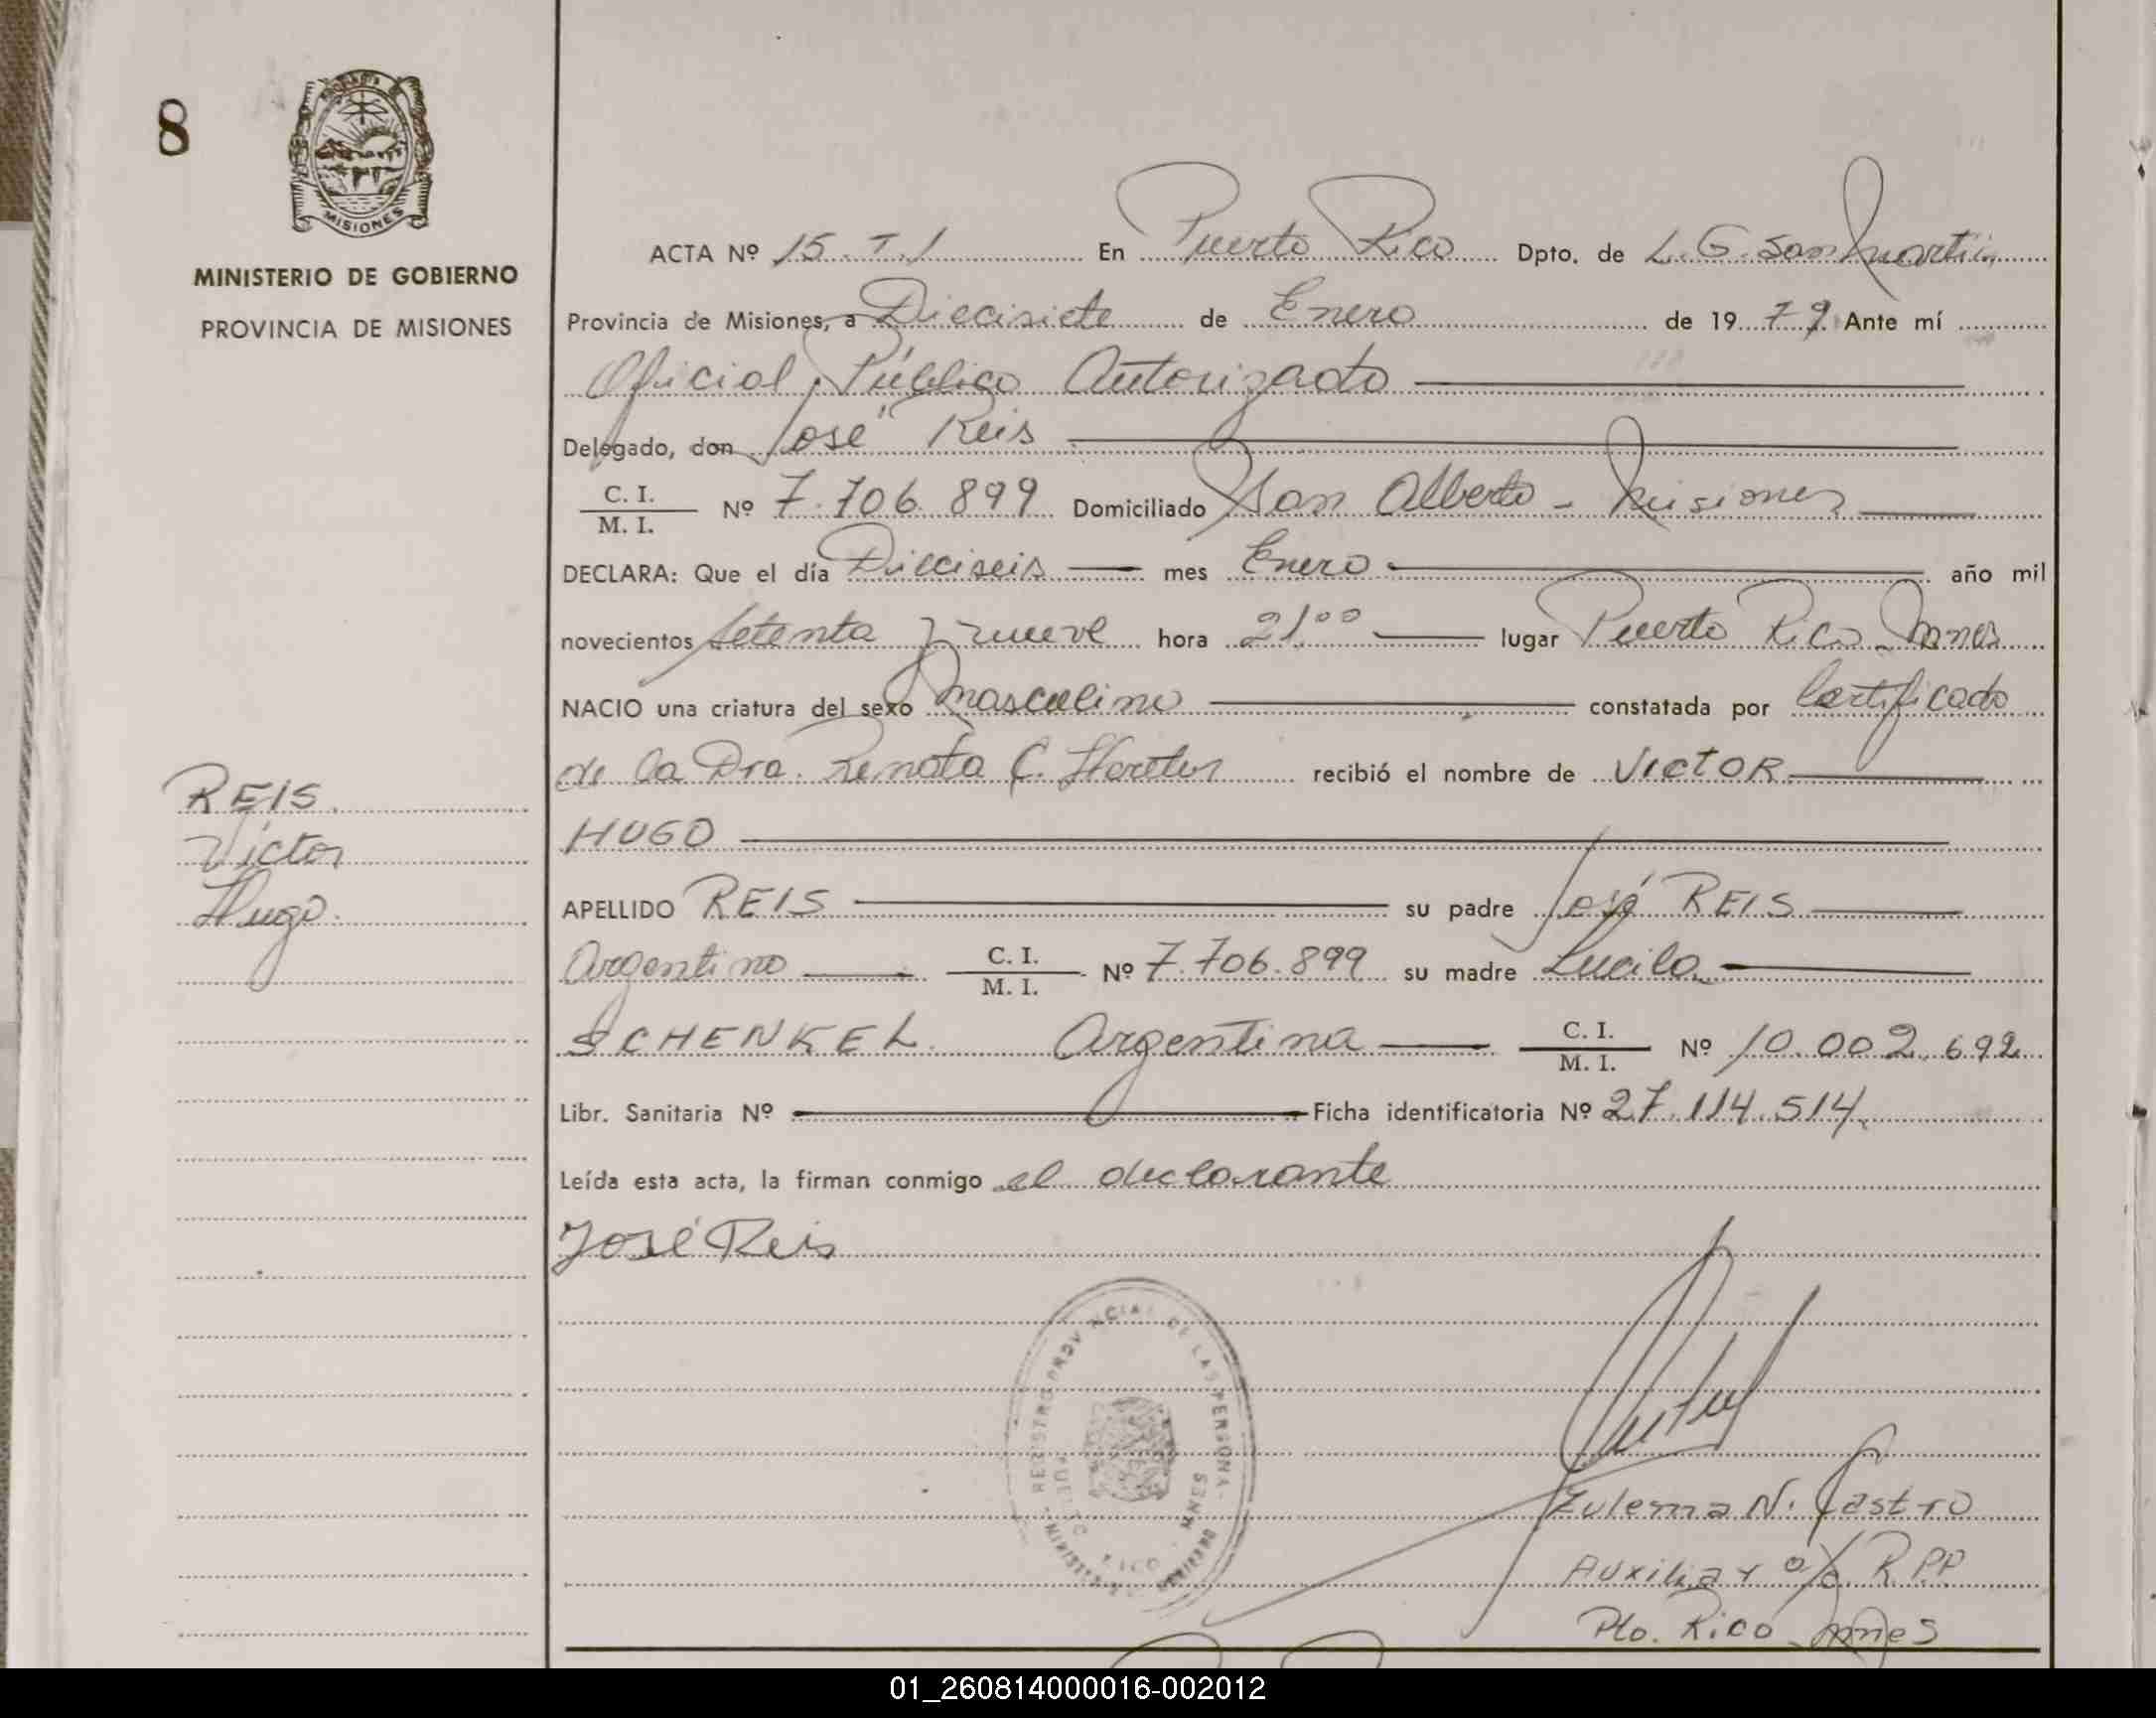 8
MISIONES
MINISTERIO DE GOBIERNO
PROVINCIA DE MISIONES
REIS
Víctor
Hugo.
ACTA Nº 15. T. I En Puerto Rico Dpto. de L. G. San Martín
Provincia de Misiones, a Diecisiete de Enero de 1979 Ante mí
Oficial Público Autorizado
Delegado, don José Reis
C. I. / M. I. Nº 7.706.899 Domiciliado San Alberto - Misiones
DECLARA: Que el día Dieciseis mes Enero año mil
novecientos setenta y nueve hora 21.00 lugar Puerto Rico - Mnes
NACIO una criatura del sexo masculino constatada por Certificado
de la Dra. Renata C. recibió el nombre de VICTOR
HUGO
APELLIDO REIS su padre José REIS
Argentino C. I. / M. I. Nº 7.706.899 su madre Lucila
SCHENKEL Argentina C. I. / M. I. Nº 10.002.692
Libr. Sanitaria Nº Ficha identificatoria Nº 27.114.514
Leída esta acta, la firman conmigo el declarante
José Reis
REGISTRO PROVINCIAL DE LAS PERSONAS
Zulema N. Castro
Auxiliar o/c R.P.P
Pto. Rico Mnes
01_260814000016-002012